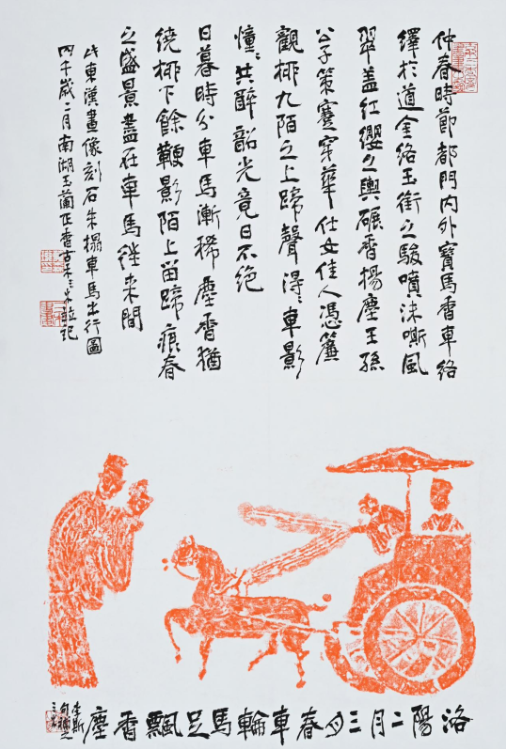 仲春時節都門內外寶馬香車絡
繹於道金絡玉銜之駿噴沫嘶風
翠蓋紅纓之輿碾香揚塵王孫
公子策蹇穿華仕女佳人憑簾
觀柳九陌之上蹄聲得〻車影
憧〻共醉韶光竟日不絕
日暮時分車馬漸稀塵香猶
繞柳下餘鞭影陌上留蹄痕春
之盛景盡在車馬往來間
東漢畫像刻石朱搨車馬出行圖
歲二月南湖玉蘭正香
洛陽二月三月春車輪馬足飄香塵